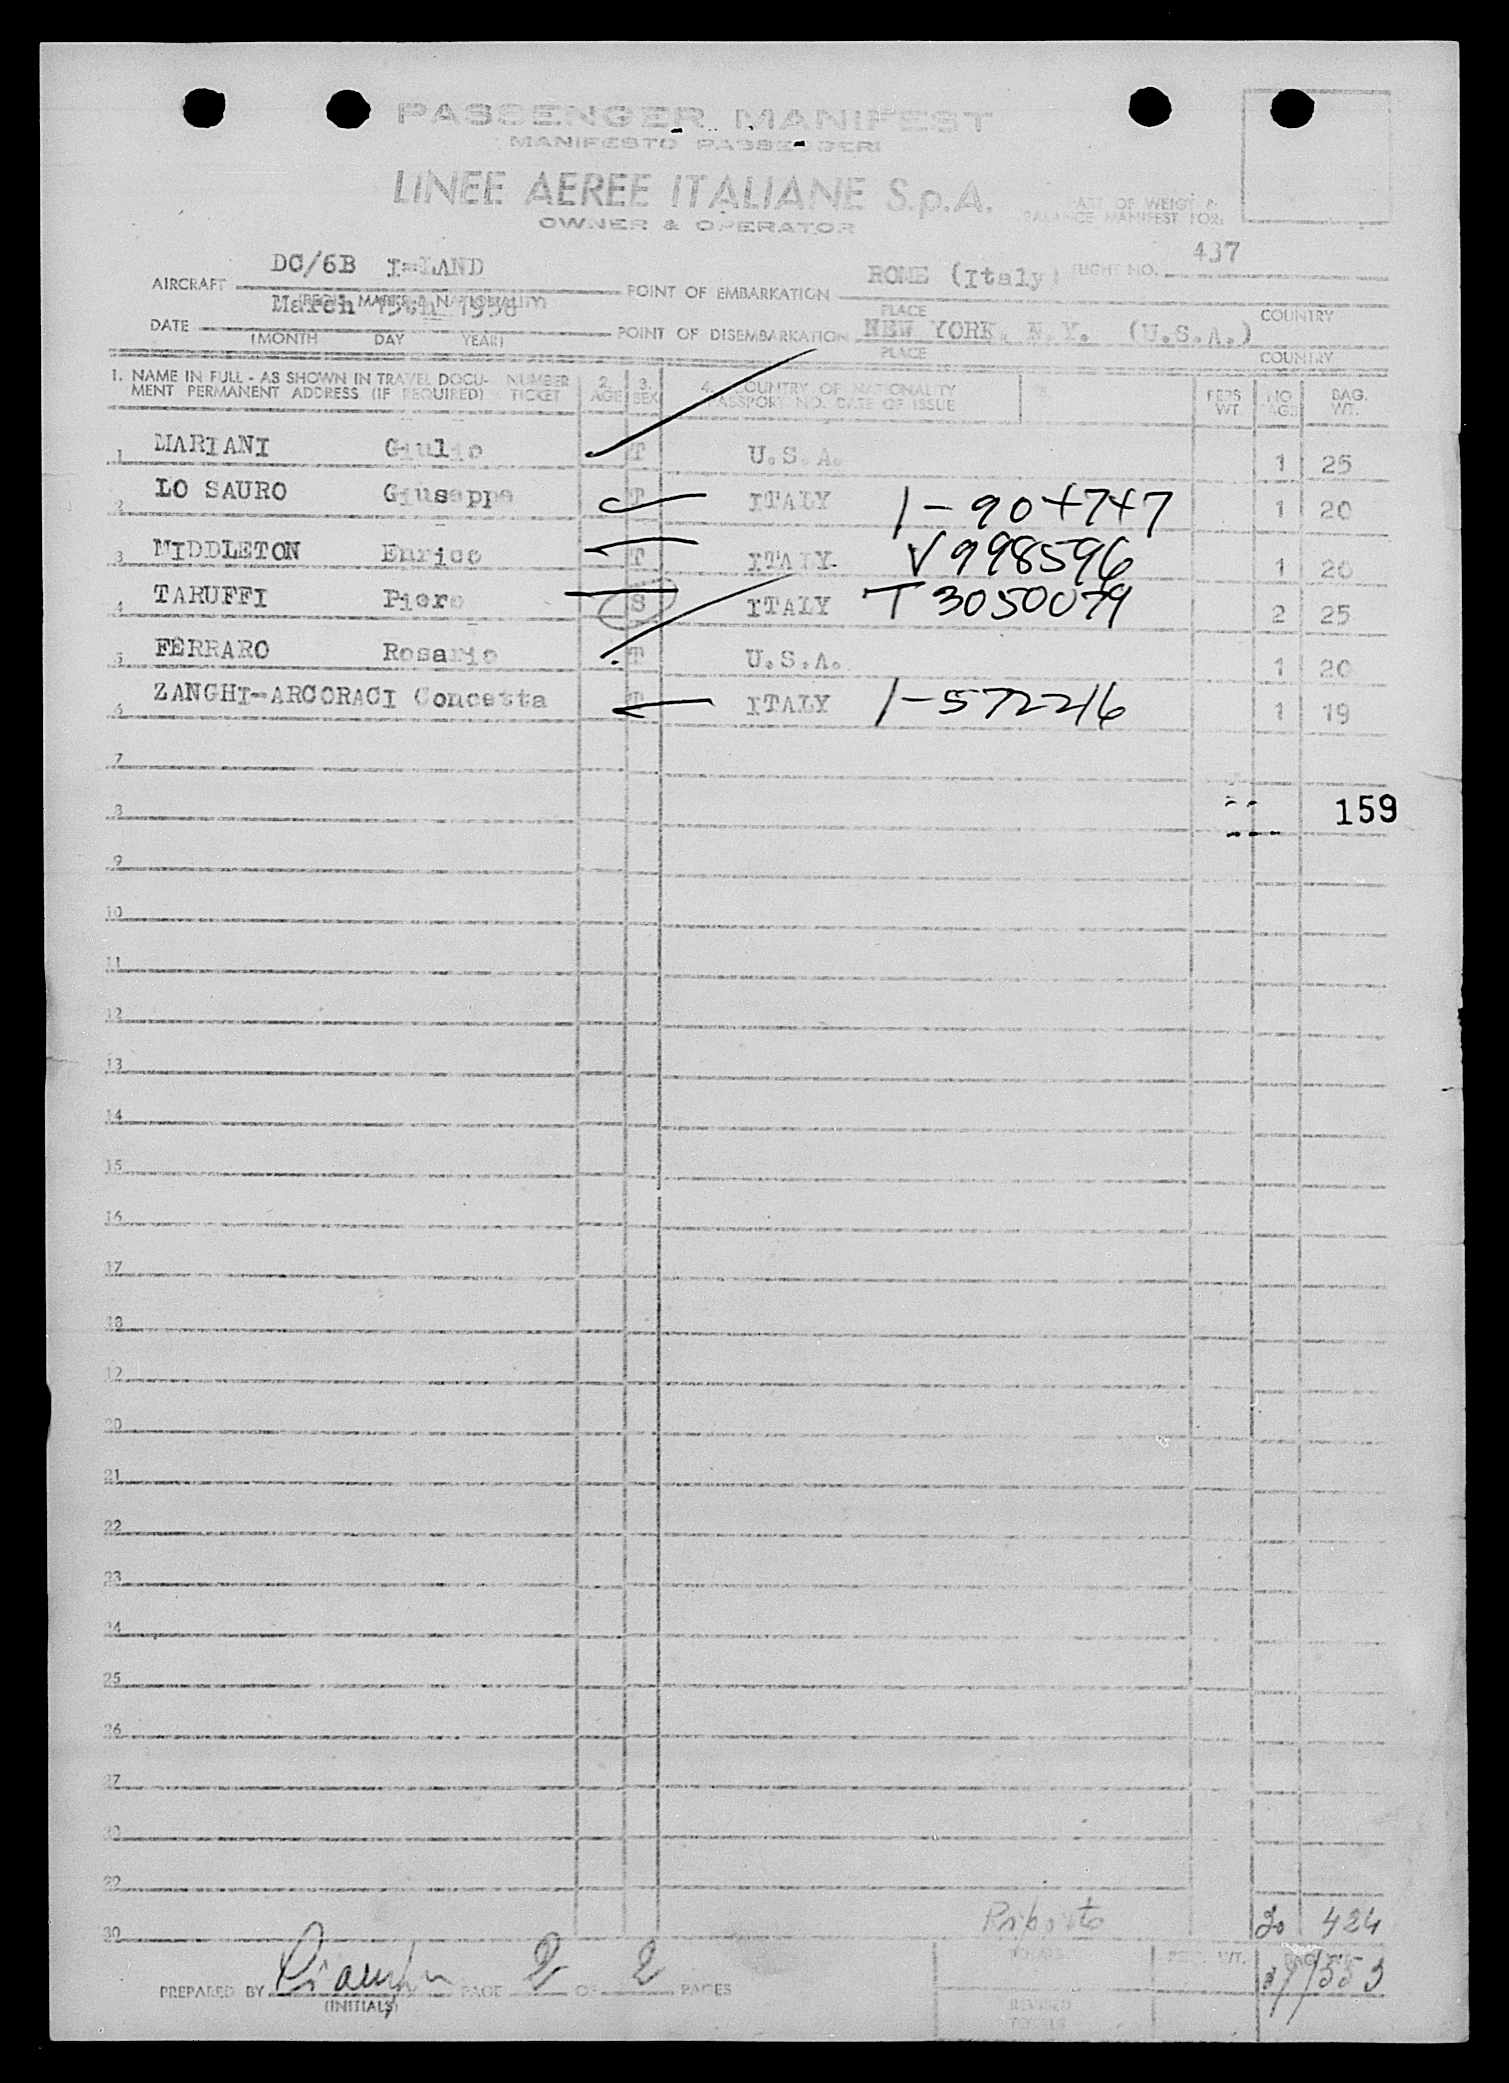 PASSENGER MANIFEST
MANIFESTO PASSEGGERI
LINEE AEREE ITALIANE S.p.A.
OWNER & OPERATOR
PART OF WEIGT &
BALANCE MANIFEST FOR:
AIRCRAFT DC/6B I-LAND
(REGIS. MARKS & NATIONALITY)
POINT OF EMBARKATION ROME (Italy) FLIGHT NO. 437
PLACE COUNTRY
DATE March 15th 1958
(MONTH DAY YEAR)
POINT OF DISEMBARKATION NEW YORK, N.Y. (U.S.A.)
PLACE COUNTRY
1. NAME IN FULL - AS SHOWN IN TRAVEL DOCU- NUMBER 2. 3. 4. COUNTRY OF NATIONALITY PERS NO BAG.
MENT PERMANENT ADDRESS (IF REQUIRED) TICKET AGE SEX PASSPORT NO. DATE OF ISSUE WT. BAGS WT.
1 MARIANI Giulio T U.S.A. 1 25
2 LO SAURO Giuseppe T ITALY 1-904747 1 20
3 MIDDLETON Enrico T ITALY V998596 1 20
4 TARUFFI Piero S ITALY T3050079 2 25
5 FERRARO Rosario T U.S.A. 1 20
6 ZANGHI-ARCORACI Concetta T ITALY 1-572216 1 19
7
8 159
9
10
11
12
13
14
15
16
17
18
19
20
21
22
23
24
25
26
27
Riporto 20 424
30
PREPARED BY PAGE 2 OF 2 PAGES
(INITIALS)
TOTALS
REVISED
TOTALS